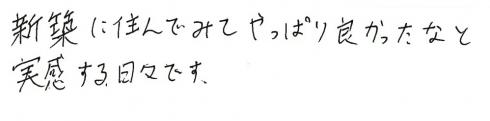 新築に住んでみてやっぱり良かったなと
実感する日々です。